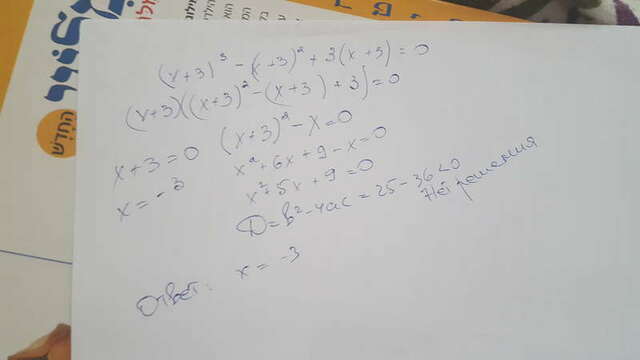 (x+3)³ - (x+3)² + 3(x+3) = 0
(x+3)((x+3)² - (x+3) + 3) = 0
x+3=0 (x+3)² - x = 0
x = -3 x² + 6x + 9 - x = 0
x² + 5x + 9 = 0
D = b² - 4ac = 25 - 36 < 0
Нет решения
Ответ: x = -3
החדש